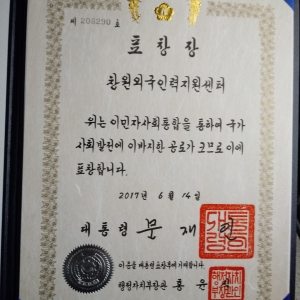 제 205290 호
표 창 장
창원외국인력지원센터
위는 이민자사회통합을 통하여 국가
사회발전에 이바지한 공로가 크므로 이에
표창합니다.
2017년 6월 14일
대통령 문 재 인
이 증을 대통령표창부에 기재합니다.
행정자치부장관 홍 윤